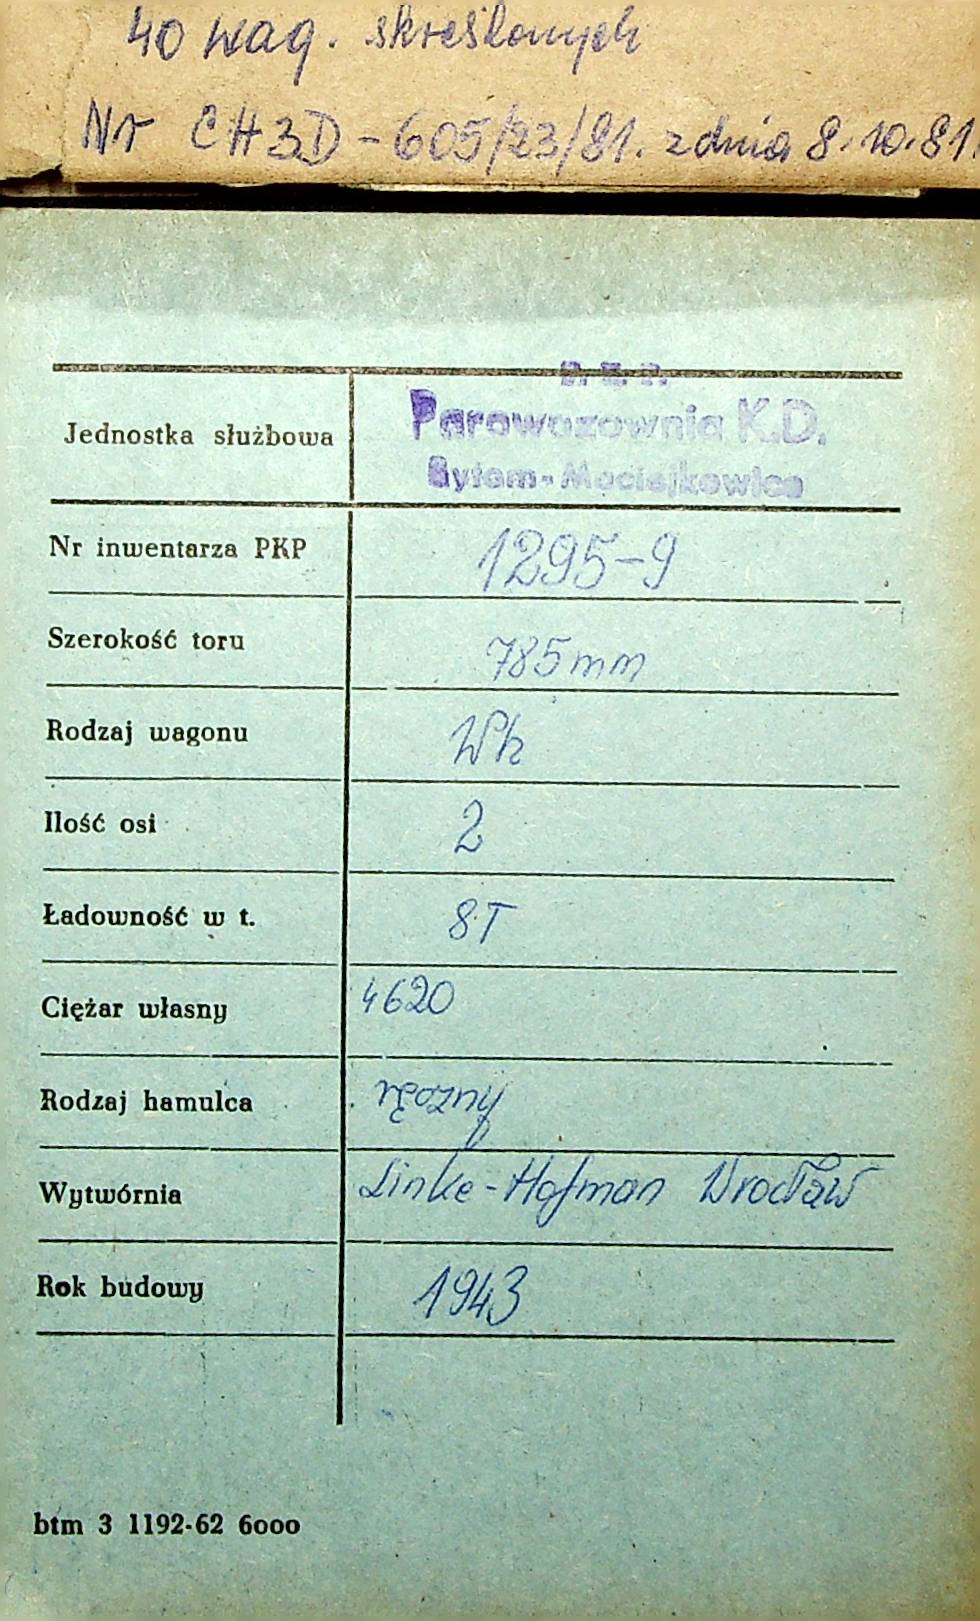 40 wag. skreślonych
Nr CH3D-605/23/81. z dnia 8.10.81.
P. K. P.
Jednostka służbowa Parowozownia K.D.
Bytom-Maciejkowice
Nr inwentarza PKP 1295-9
Szerokość toru 785 mm
Rodzaj wagonu Wk
Ilość osi 2
Ładowność w t. 8T
Ciężar własny 4620
Rodzaj hamulca ręczny
Wytwórnia Linke-Hofman Wrocław
Rok budowy 1943
btm 3 1192-62 6000